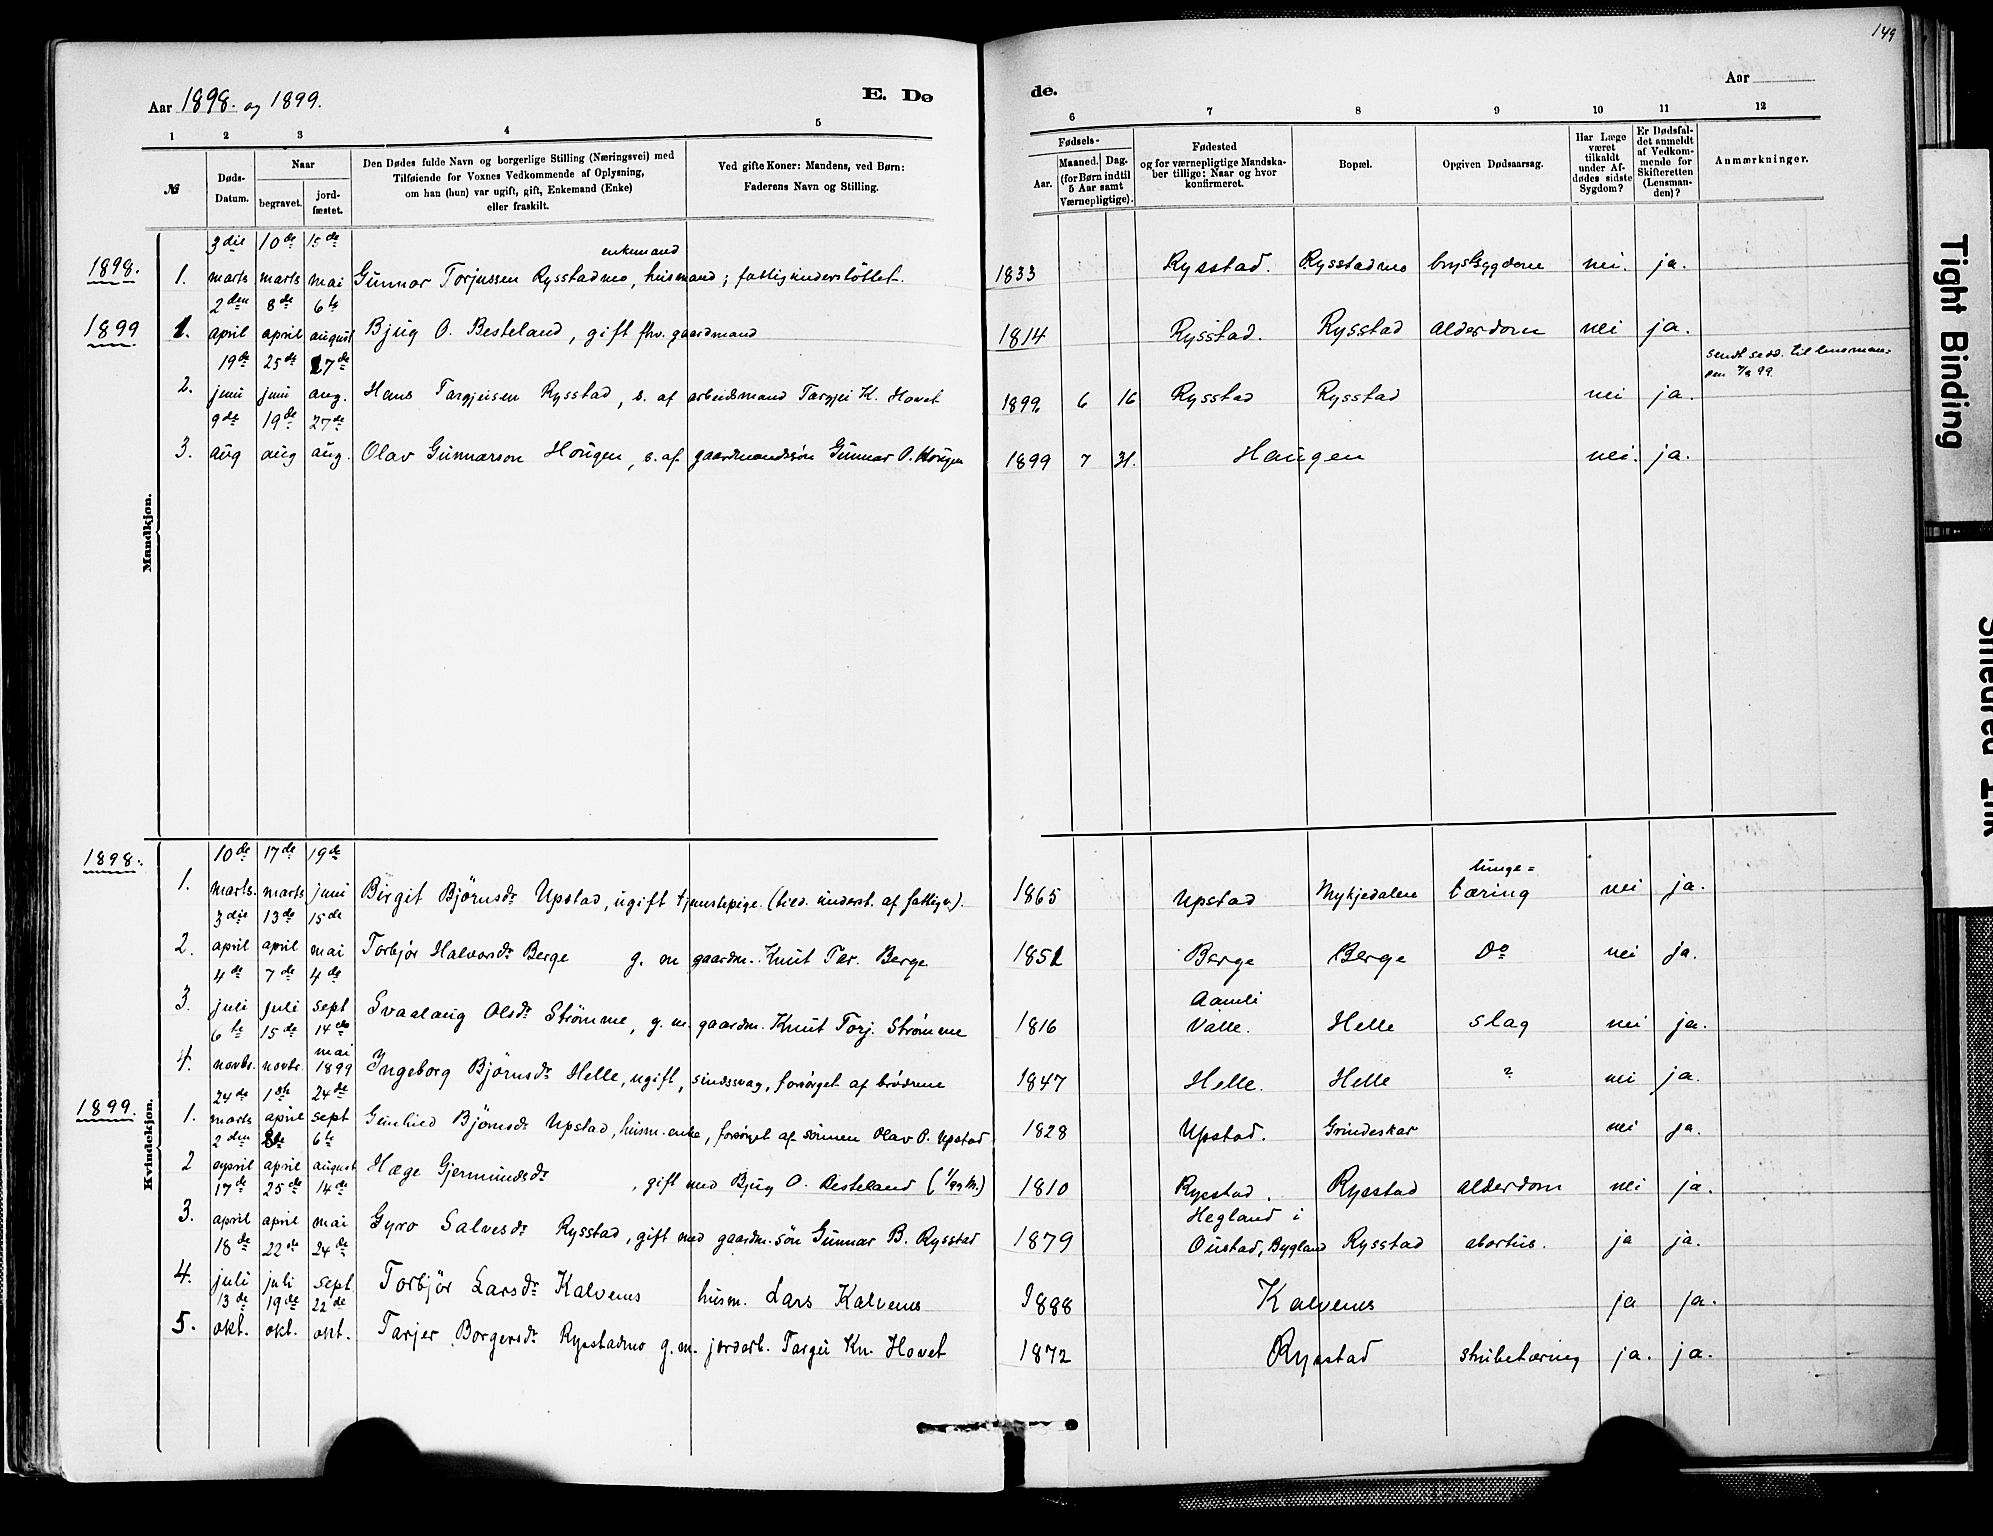 149
Aar 1898. og 1899.
E. Dø
de.
Aar
1 2 3 4 5 6 7 8 9 10 11 12
№
Døds-Datum.
Naar
begravet.
jord-fæstet.
Den Dødes fulde Navn og borgerlige Stilling (Næringsvei) med
Tilføiende for Voxnes Vedkommende af Oplysning,
om han (hun) var ugift, gift, Enkemand (Enke)
eller fraskilt.
Ved gifte Koner: Mandens, ved Børn:
Faderens Navn og Stilling.
Fødsels-
Aar.
Maaned. Dag.
(for Børn indtil
5 Aar samt
Værnepligtige).
Fødested
og for værnepligtige Mandska-
ber tillige: Naar og hvor
konfirmeret.
Bopæl.
Opgiven Dødsaarsag.
Har Læge
været
tilkaldt
under Af-
dødes sidste
Sygdom?
Er Dødsfal-
det anmeldt
af Vedkom-
mende for
Skifteretten
(Lensman-
den)?
Anmærkninger.
Mandkjøn.
3die 10de 15de
enkemand
1898. 1. marts marts mai Gunnar Torjussen Rysstadmo, husmand; fattigunderstöttet. 1833 Rysstad. Rysstadmo brystsygdom nei. ja.
2den 8de 6te
1899 1. april april august Bjug O. Besteland, gift fhv. gaardmand 1814 Rysstad. Rysstad alderdom nei ja.
19de 25de 27de
sendt sedd. til lensman-
2. juni juni aug. Hans Targjeisen Rysstad, s. af arbeidsmand Targjei K. Hovet 1899 6 16 Rysstad Rysstad nei ja.
9de 19de 27de
3. aug aug aug. Olav Gunnarson Hougen, s. af gaardmandssön Gunnar O. Hougen 1899 7 31. Haugen nei. ja.
Kvindekjøn.
10de 17de 19de
1898. 1. marts. marts juni Birgit Björnsdr Upstad, ugift tjenestepige. (tied. underst. af fattigv.). 1865 Upstad Mykjedalen lunge=
tæring nei ja.
3die 13de 15de
2. april april mai Torbjör Halvorsdr Berge g. m gaardm. Knut Tar. Berge 1851 Berge Berge Do nei ja.
4de 7de 4de
3. juli juli sept Svaalaug Olsdr Strömme, g. m. gaardm. Knut Torj. Strömme 1816 Aamli
Valle. Helle slag nei ja.
6te 15de 14de
4. novbr. novbr. mai
1899 Ingeborg Björnsdr Helle, ugift, sindssvag, forsörget af brödrene 1847 Helle. Helle ? nei ja.
24de 1ste 24de
1899. 1. marts april sept Gunhild Björnsdr Upstad, husm. enke, forsörget af sönnen Olav O. Upstad 1828 Upstad. Grindeskar nei ja.
2den 8de 6te
2 april april august Hæge Gjermundsdr , gift med Bjug O. Besteland 1810 Rysstad. Rysstad alderdom nei ja.
17de 25de 14de
3. april april mai Gyro Salvesdr Rysstad, gift med gaardm. sön Gunnar B. Rysstad 1879 Hegland i
Oustad, Bygland Rysstad abortus. ja ja.
18de 22de 24de
4. juli juli sept. Torbjör Larsdr Kalvenes husm. Lars Kalvenes 1888 Kalvenes ja ja.
13de 19de 22de
5. okt. okt. okt. Tarjer Borgersdr Rysstadmo g. m. jordarb. Targei Kn. Hovet 1872 Rysstad strubetæring ja. ja.
Tight Binding
Smeared Ink